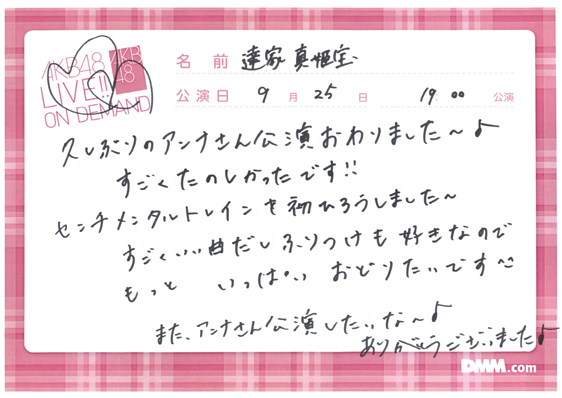 AKB48
LIVE!!
ON DEMAND
AKB
48
名前 達家真姫宝
公演日 9月25日 19:00公演
久しぶりのアンナさん公演おわりました〜♪
すごくたのしかったです!!
センチメンタルトレインを初ひろうしました〜
すごくいい曲だしふりつけも好きなので
もっと いっぱい おどりたいです
また、アンナさん公演したいな〜♪
ありがとうございました♪
DMM.com